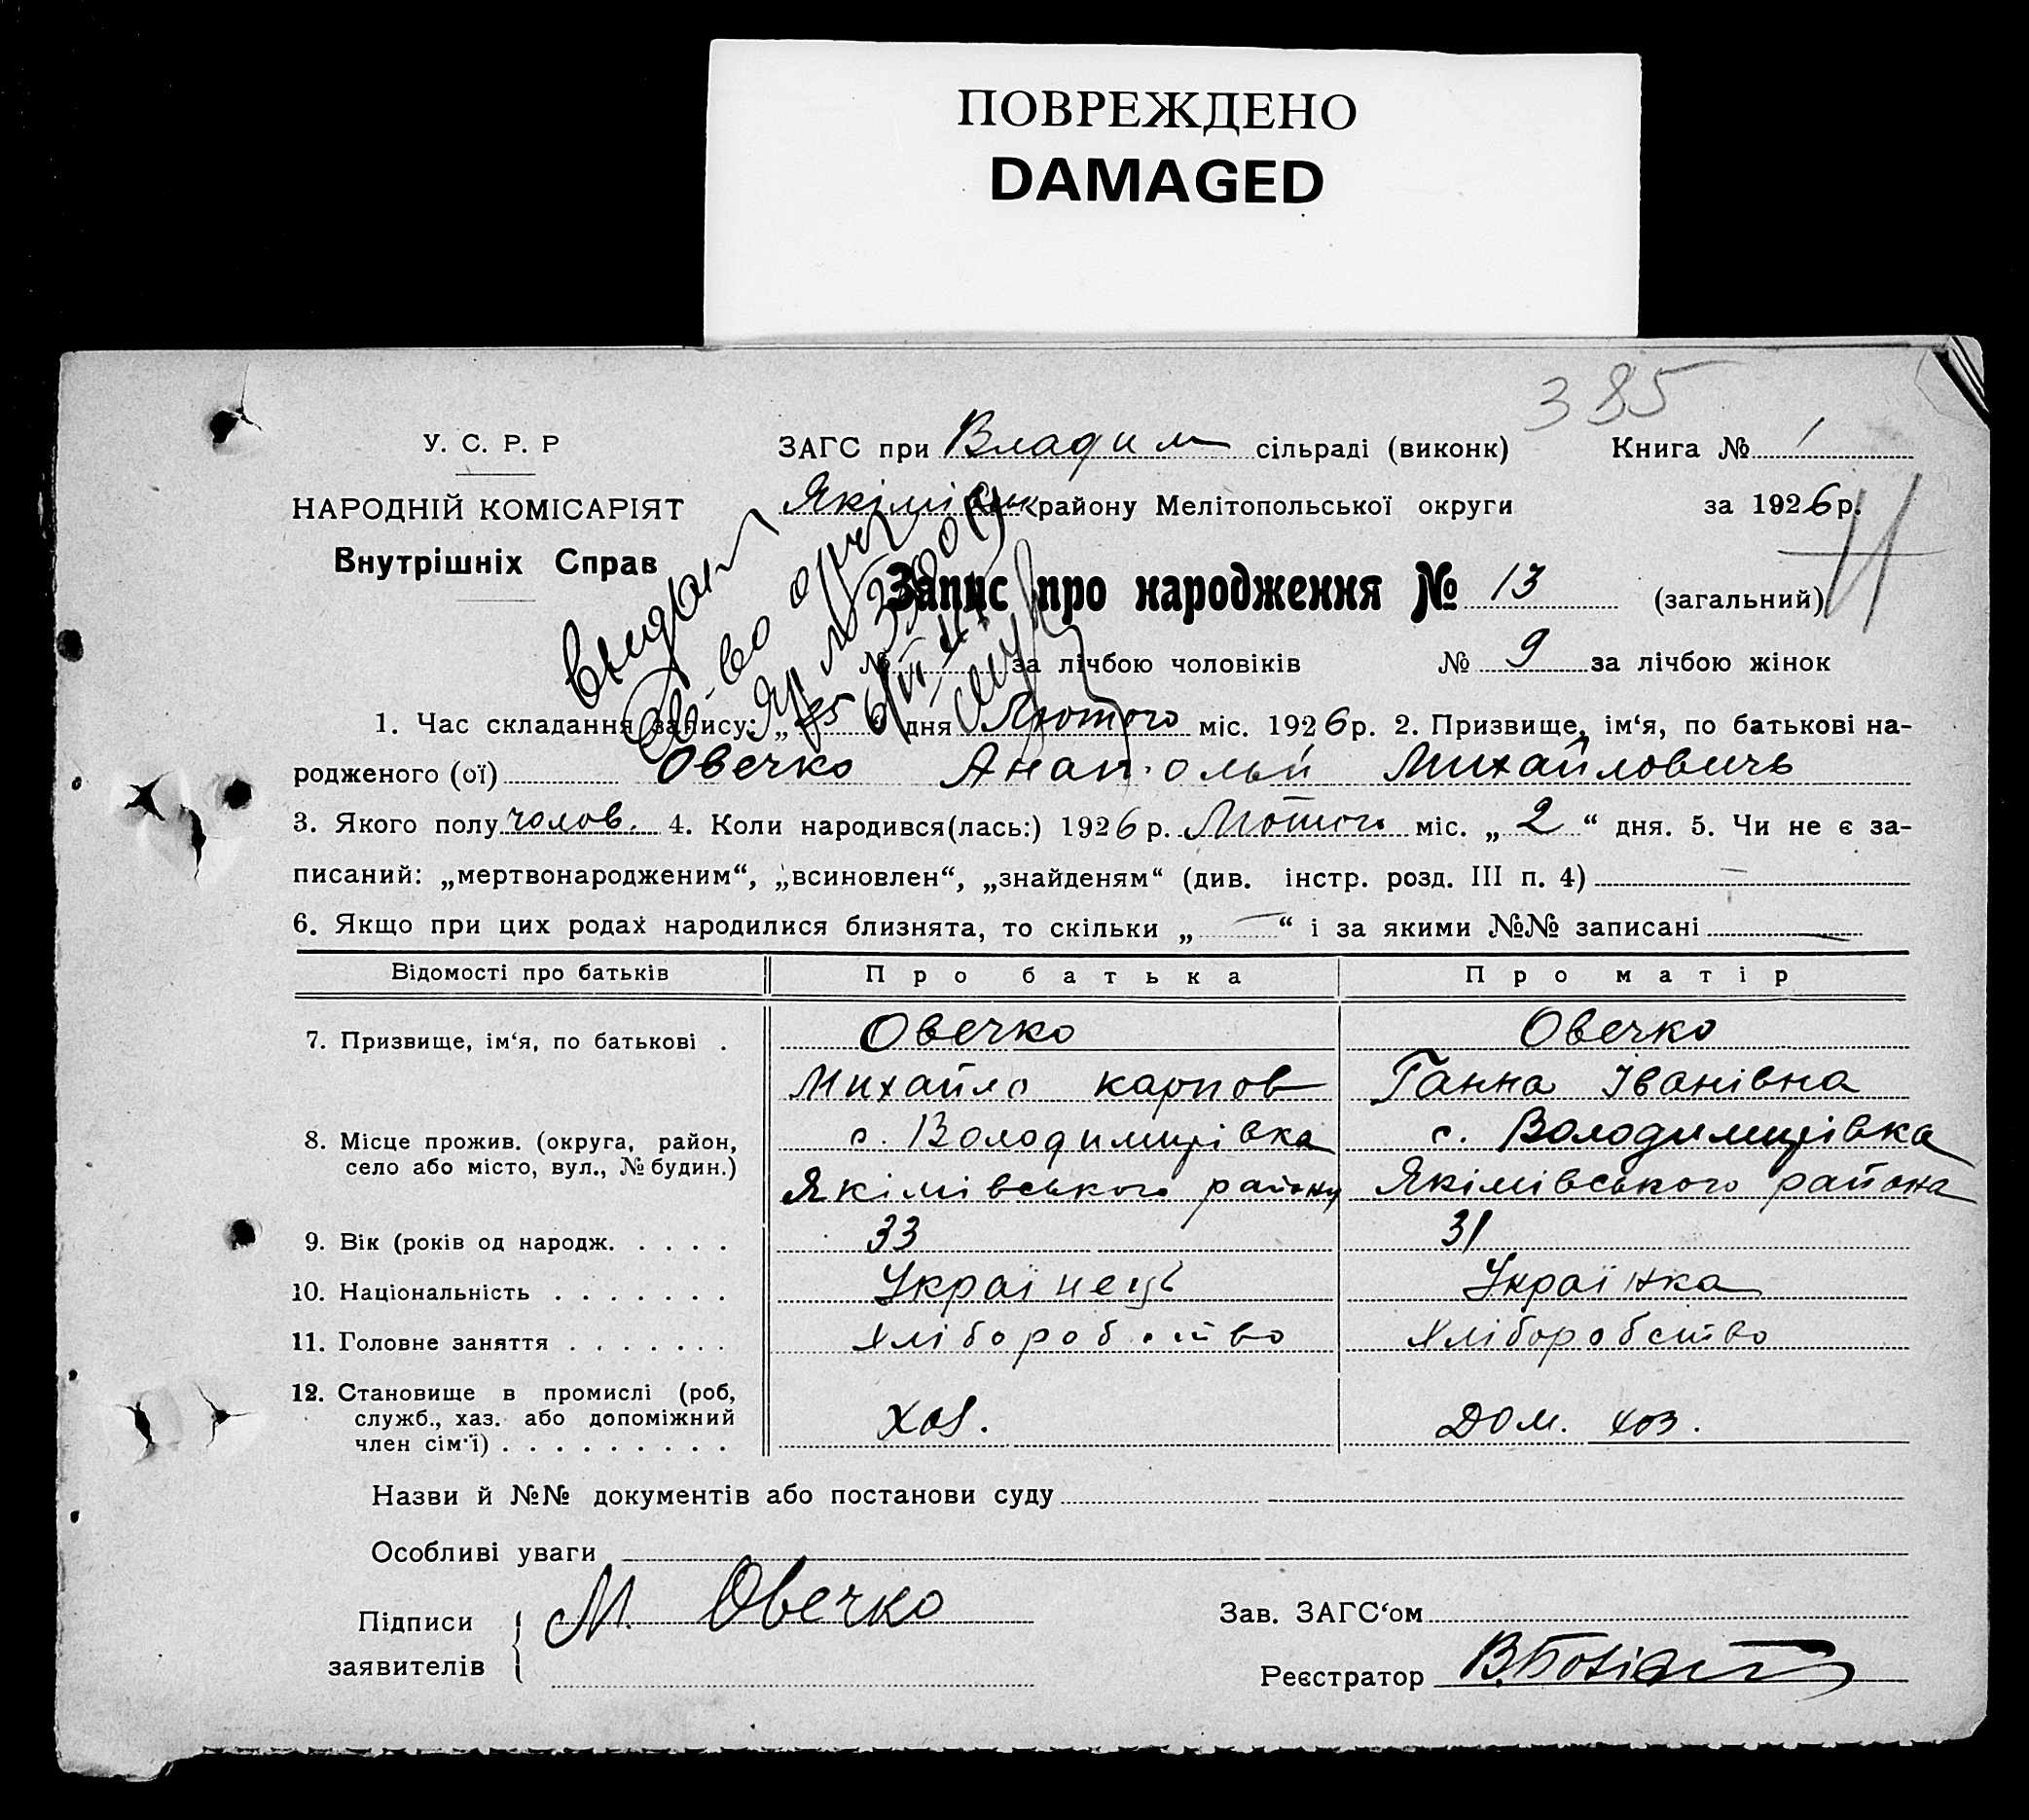 ПОВРЕЖДЕНО
DAMAGED
385
У. С. Р. Р
ЗАГС при Владим сільраді (виконк) Книга № 1
НАРОДНІЙ КОМІСАРІЯТ
Якімівськ району Мелітопольської округи за 1926 р.
Внутрішніх Справ
Запис про народження № 13 (загальний)
№ за лічбою чоловіків № 9 за лічбою жінок
1. Час складання запису: „ “ дня Лютого міс. 1926 р. 2. Призвище, ім‘я, по батькові на-
родженого (ої) Овечко Анатолый Михайловичь
3. Якого полу чолов. 4. Коли народився(лась:) 1926 р. Лютого міс. „ 2 “ дня. 5. Чи не є за-
писаний: „мертвонародженим“, „всиновлен“, „знайденям“ (див. інстр. розд. III п. 4) —
6. Якщо при цих родах народилися близнята, то скільки „ — “ і за якими №№ записані —
Відомості про батьків Про батька Про матір
7. Призвище, ім‘я, по батькові . Овечко Овечко
Михайло карпов Ганна Іванівна
8. Місце прожив. (округа, район, с. Володимирівка с. Володимирівка
село або місто, вул., № будин.) Якімівського району Якімівського района
9. Вік (років од народж. . . . . 33 31
10. Національність . . . . . . . Українець Українка
11. Головне заняття . . . . . . . Хліборобство Хліборобство
12. Становище в промислі (роб,
служб., хаз. або допоміжний хоз. дом. хоз.
член сім‘ї) . . . . . . . . .
Назви й №№ документів або постанови суду
Особливі уваги
Підписи М. Овечко Зав. ЗАГС‘ом
заявителів Реєстратор
выдан